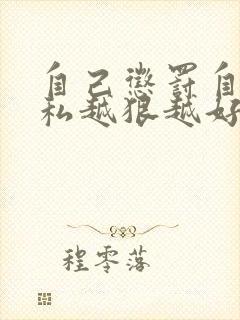 自己惩罚自
私越狠越好
程零落